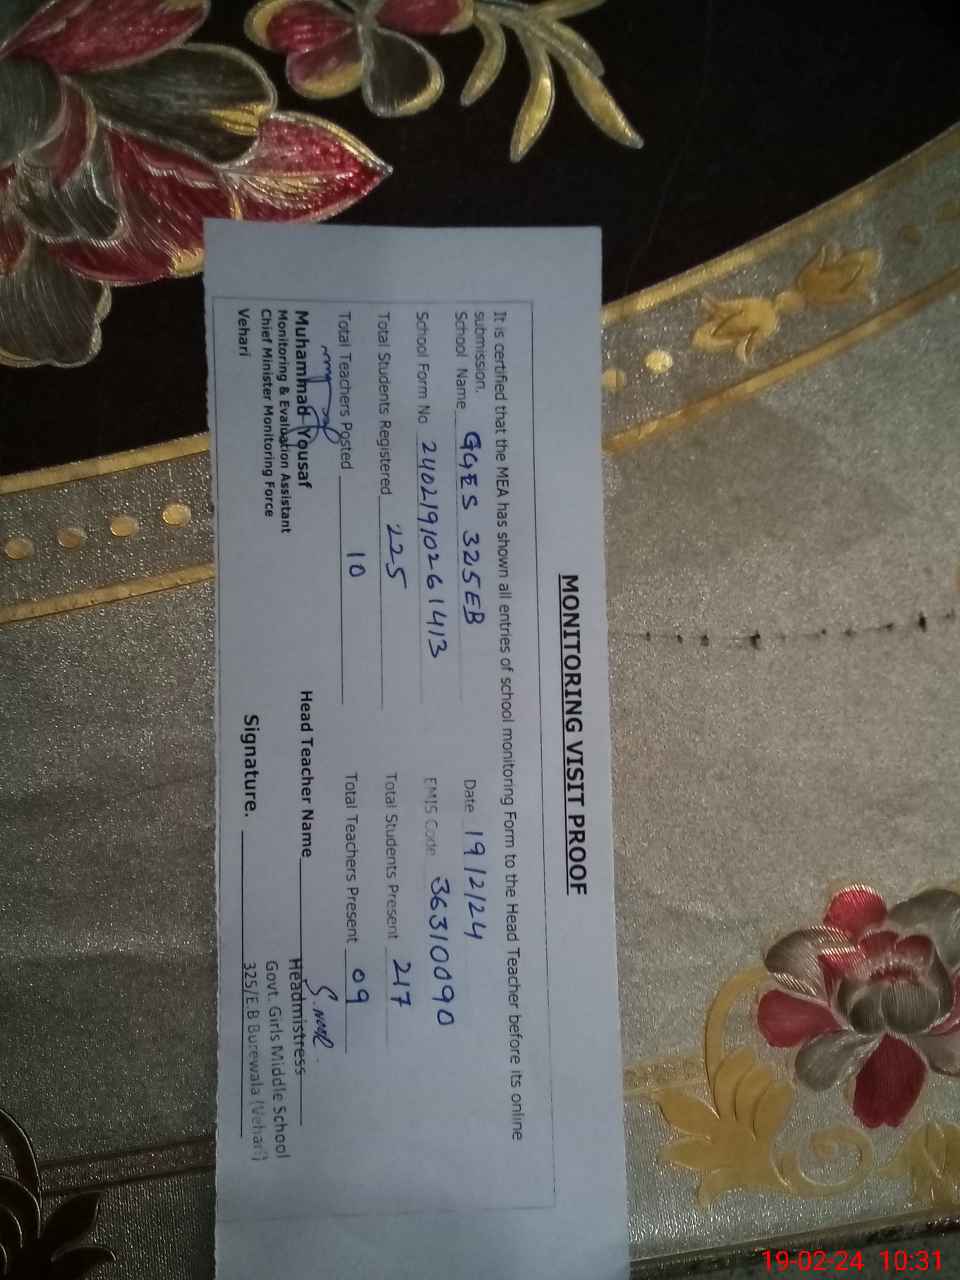 MONITORING VISIT PROOF
It is certified that the MEA has shown all entries of school monitoring Form to the Head Teacher before its online
submission.
School Name GGES 325EB Date 19/2/24
School Form No 2402191026 1413 EMIS Code 36310090
Total Students Registered 225 Total Students Present 217
Total Teachers Posted 10 Total Teachers Present 09
Muhammad Yousaf Head Teacher Name S. NOOR
Monitoring & Evaluation Assistant Headmistress
Chief Minister Monitoring Force Govt. Girls Middle School
Vehari Signature. 325/E.B Burewala (Vehari)
19-02-24 10:31